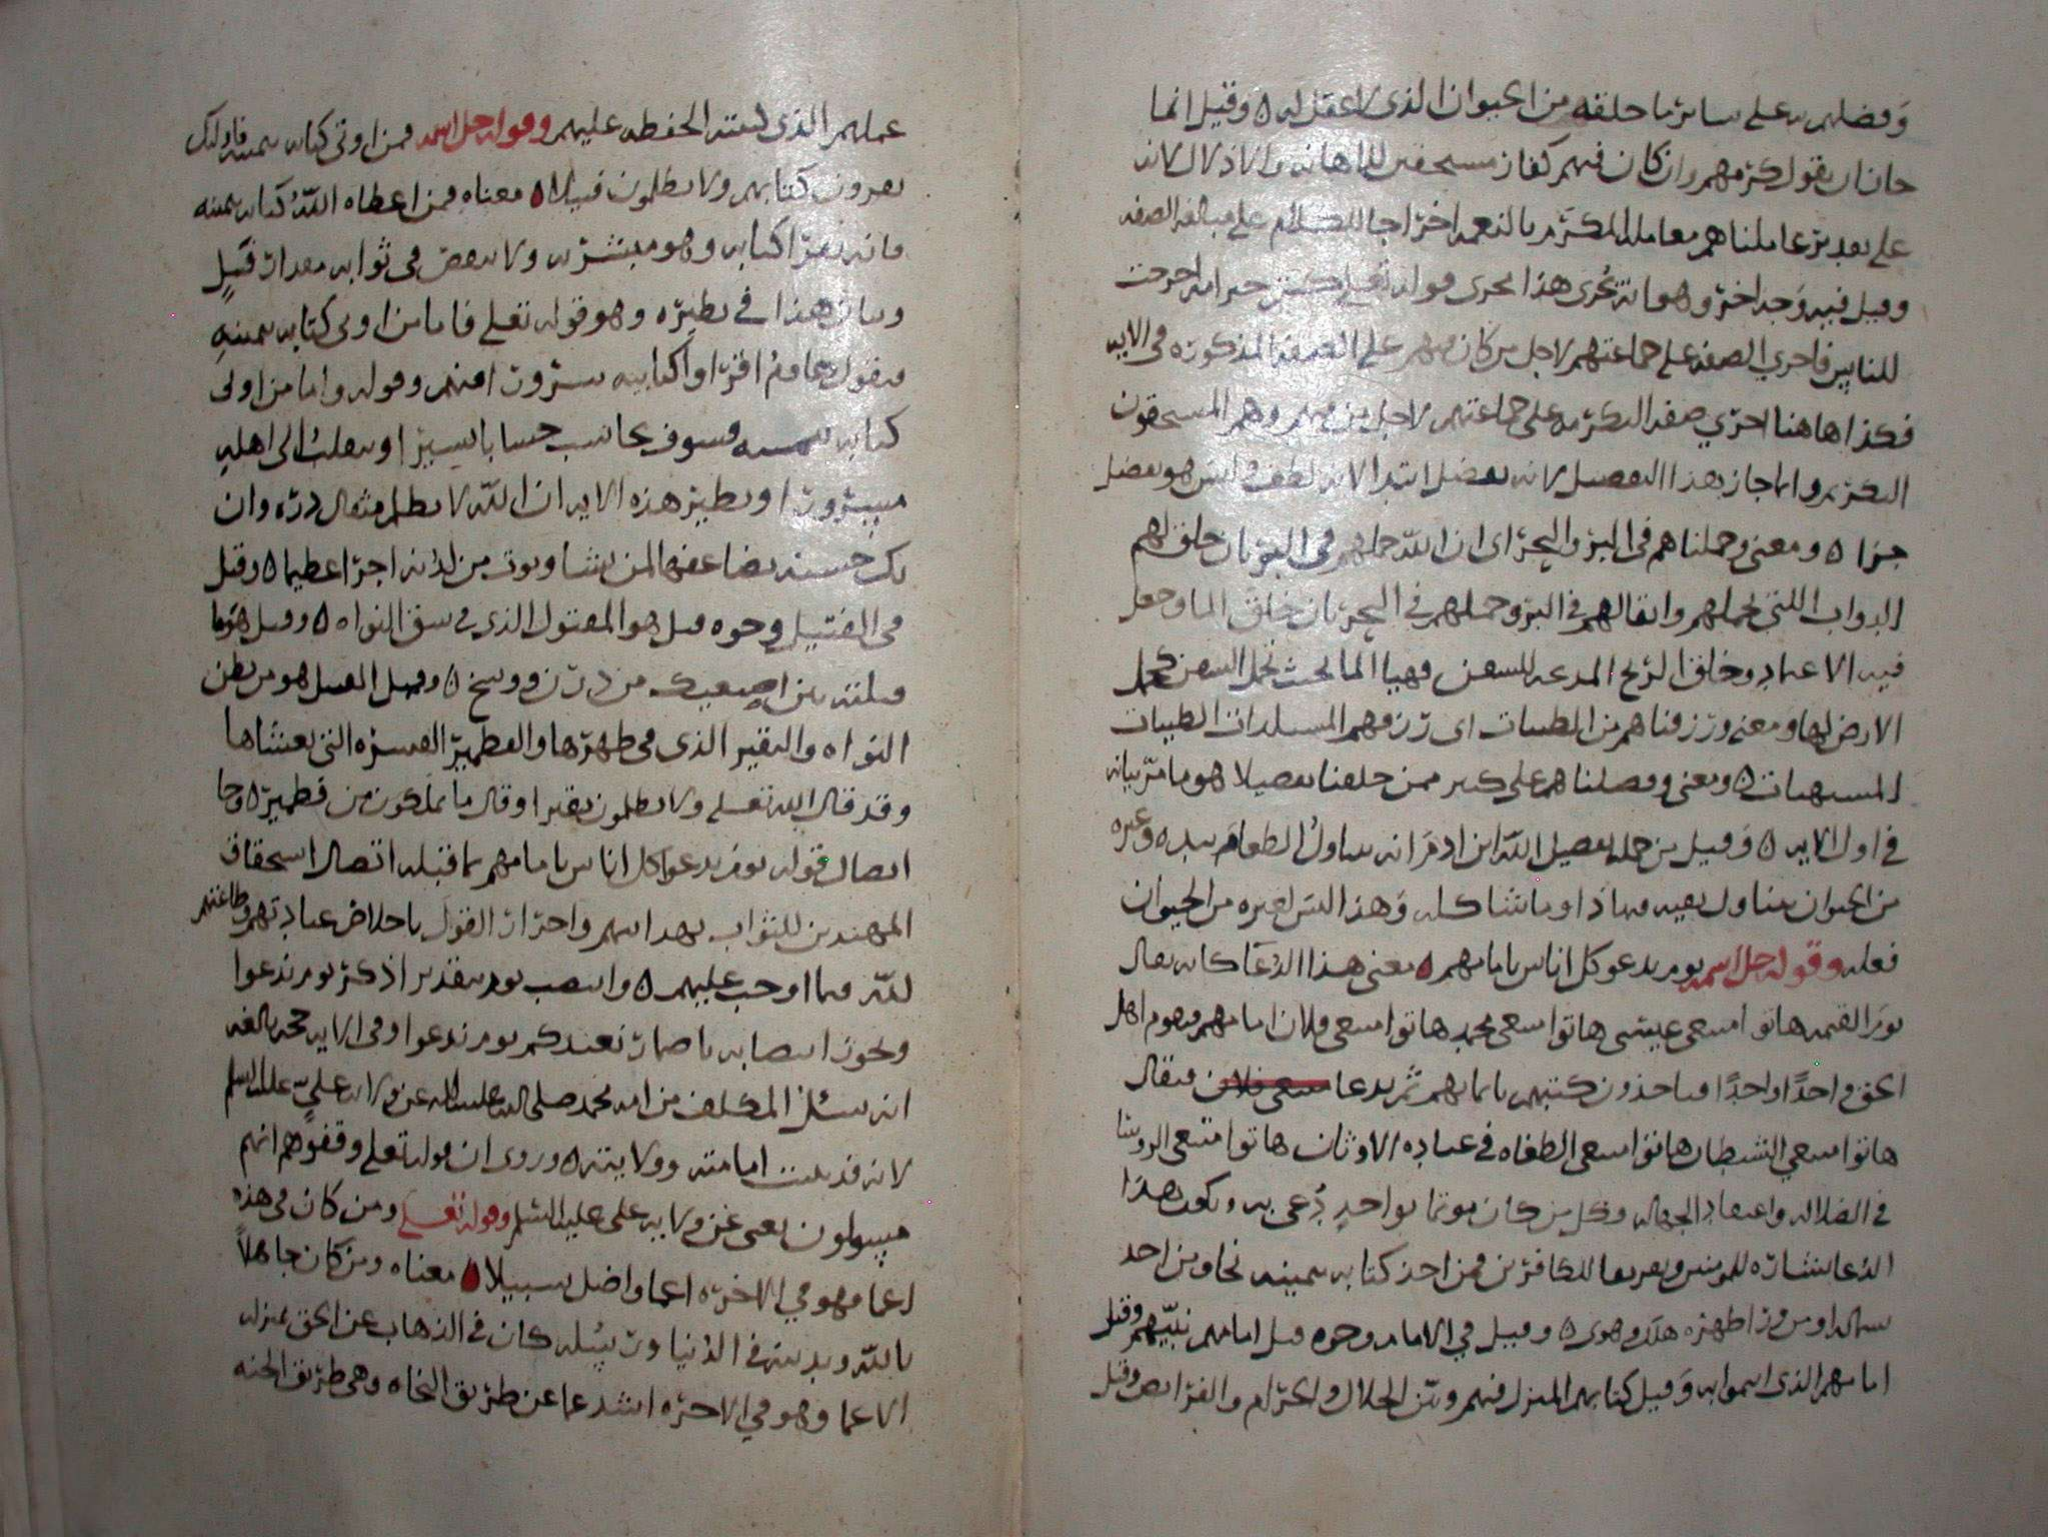 وفضلهم به على سائر ما خلقه من الحيوان الذي لا عقل له ه وقيل انما
جاز ان يقول كرمهم وان كان فيهم كفار مستحقين للاهانه والاذلال لانه
على تقدير عاملناهم معامله المكرم بالنعمه اخراجا للكلام على مبالغه الصفه
وقيل فيه وجه اخر وهو انه يجرى هذا مجرى قوله تعلى كنتم خير امه اخرجت
للناس فاجرى الصفه على جماعتهم لاجل من كان منهم على الصفه المذكوره فى الايه
فكذا هاهنا اجرى صفه التكرمه على جماعتهم لاجل من فيهم وهم المستحقون
التكريم وانما جاز بهذا التفضيل لانه تفضل ابتدا لانه لطف وليس هو تفضل
جزا ه ومعنى وحملناهم فى البر والبحر اى ان الله حملهم فى البر بان خلق لهم
الدواب اللتى تحملهم واثقالهم فى البر وحملهم فى البحر بان خلق الما وجعل
فيه الاعتماد وخلق الريح المدعه للسفن وهيا الما بحيث تحمل السفن كحمل
الارض لها ومعنى ورزقناهم من الطيبات اى رزقهم المستلذات الطيبات
المشتهيات ه ومعنى وفضلناهم على كثير ممن خلقنا تفضيلا هو ما مر بيانه
فى اول الايه ه وقيل من جمله تفضيل الله ابن ادم انه يتناول الطعام بيده ه وغيره
من الحيوان يتناول بفيه وما ذا وما شاكله وهذا ليس لغيره من الحيوان
فعله وقوله جل اسمه يوم يدعو كل اناس بامامهم ه معنى هذا الدعا كانه يقال
يوم القيمه هاتوا متبعى عيسى هاتوا متبعى محمد هاتوا متبعى فلان امامهم فيقوم اهل
الحق واحدًا واحدًا فياخذون كتبهم بايمانهم ثم يدعا متبعى فلان فيقال
هاتوا متبعي الشيطان هاتوا متبعى الطغاه فى عباده الاوثان هاتوا متبعى الروسا
فى الضلاله واعتقاد الجهاله وكل من كان موتما بواحد دُعي به ويكون هذا
الدعا بشاره للمومنين وتعريفا للكافرين فمن اخذ كتابه بيمينه نجا ومن اخذ
بشماله او من ورا ظهره هلك وهوى ه وقيل في الامام وجوه قيل امامهم نبيهم وقيل
امامهم الذى ائتموا به وقيل كتابهم المنزل فيهم وبين الحلال والحرام والفرايض وقيل
عملهم الذى كتبته الحفظه عليهم وقوله جل اسمه فمن اوتى كتابه بيمينه فاولىك
يقرون كتابهم ولا يظلمون فتيلا ه معناه فمن اعطاه الله كتابه بيمينه
فانه يقرا كتابه وهو مبتشر به ولا ينقص فى ثوابه مقدار فتيل
وبيان هذا فى نظيره وهو قوله تعلى فاما من اوتى كتابه بيمينه
فيقول هاوم اقراوا كتابيه سرورا منهم وقوله واما من اوتى
كتابه بيمينه فسوف يحاسب حسابا يسيرا وينقلب الى اهله
مسرورا ونظير هذه الايه ان الله لا يظلم مثقال ذره وان
تك حسنه يضاعفها لمن يشا ويوت من لدنه اجرا عظيما ه وقيل
فى الفتيل وجوه قيل هو المفتول الذى فى شق النواه ه وقيل هو ما
فتلته بين اصبعيك من درن ووسخ ه وقيل الفتيل هو من بطن
النواه والنقير الذى فى ظهرها والقطمير القشره التى يغشاها
وقد قال الله تعلى ولا يظلمون نقيرا وقال ما يملكون من قطمير ه وجا
اتصال قوله يوم يدعوا كل اناس بامامهم بما قبله اتصال استحقاق
المهتدين للثواب بهداىهم واحراز القول باخلاص عبادتهم وطاعتهم
لله فيما اوجب عليهم ه وانتصب يوم بتقدير اذكر يوم ندعوا
ويجوز انتصابه باضمار نعيدكم يوم ندعوا وفى الايه حجه بالغه
انه يسئل المكلف من امه محمد صلى الله عليه واله عن ولايه علي عليه السلم
لانه قد بلغت امامته وولايته ه وروى ان قوله تعلى وقفوهم انهم
مسولون يعنى عن ولايه على عليه السلم وقوله تعلى ومن كان فى هذه
اعما فهو في الاخره اعما واضل سبيلا ه معناه ومن كان جاهلاً
بالله وبدينه فى الدنيا ورسله كان فى الذهاب عن الحق بمنزله
الاعما وهو في الاخره اشد عما عن طريق النجاه وهى طريق الجنه